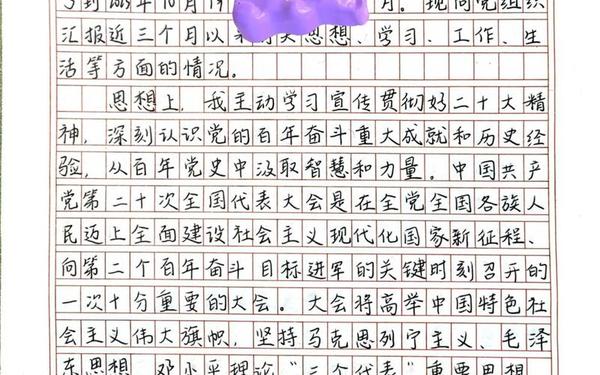 年10月19 月。现向党组织
汇报近三个月以来 思想、学习、工作、生
活等方面的情况。
思想上，我主动学习宣传贯彻好二十大精
神，深刻认识党的百年奋斗重大成就和历史经
验，从百年党史中汲取智慧和力量。中国共产
党第二十次全国代表大会是在全党全国各族人
民迈上全面建设社会主义现代化国家新征程、
向第二个百年奋斗目标进军的关键时刻召开的
一次十分重要的大会。大会将高举中国特色社
会主义伟大旗帜，坚持马克思列宁主义、毛泽
东思想、邓小平理论、“三个代表”重要思想、